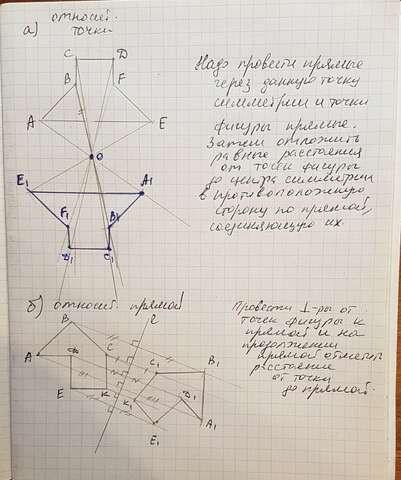 относит.
а) точки
C D
B F
A E
O
E₁ A₁
F₁ B₁
D₁ C₁
Надо провести прямые
через данную точку
симметрии и точки
фигуры прямые.
Затем отложить
равные расстояния
от точек фигуры
до центра симметрии
в противоположную
сторону по прямой,
соединяющую их.
б) относит. прямой
B
A C
E K
C₁ B₁
K₁ D₁
E₁ A₁
Провести ⊥-ры от
точек фигуры к
прямой и на
продолжении
прямой отметить
расстояние
от точки
до прямой